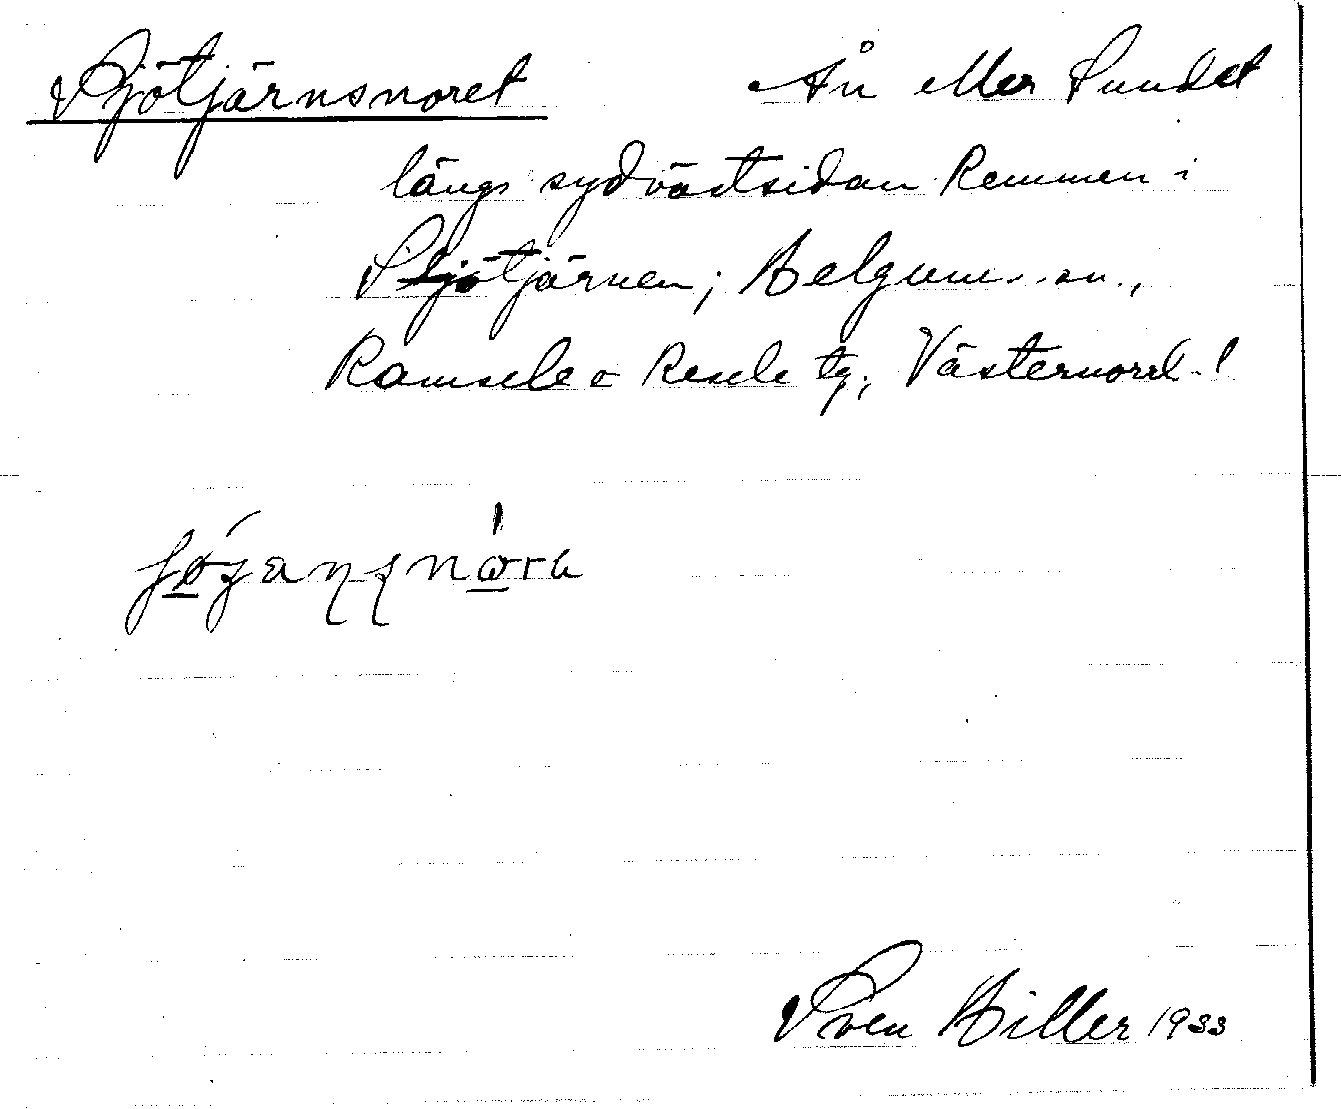 Sjötjärnsnoret Ån eller Sundet
längs sydvästsidan Remmen i
Sjötjärnen; Helgums sn.,
Ramsele o Resele tg; Västernorrl. l
Sven Hiller 1933